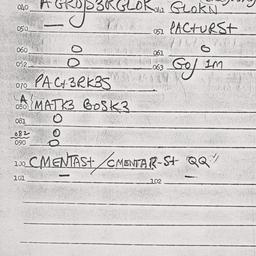 040 AGROJB3RGLOR 041 GLOKN
050 — 051 PACTURSt
060 O 061 O
062 O 063 GOJ 1M
070 PACt3RKBS
A
080 MATK3 BOSK3
081 O
082 O
090 O
100 CMENTASt/CMENTAR-St QQ"
101 — 102 —